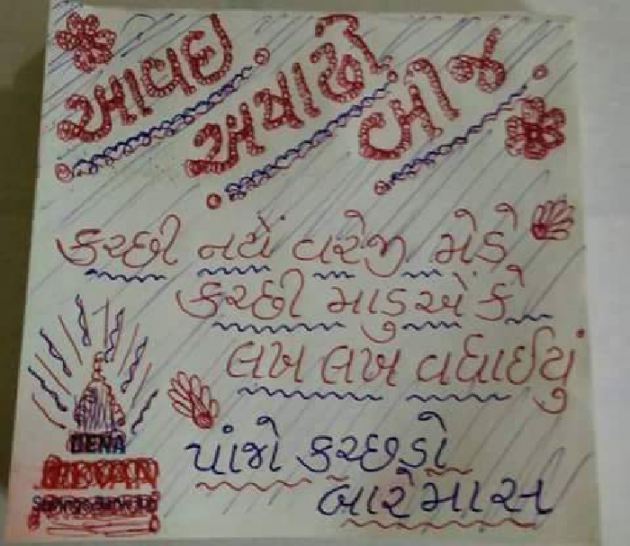 આવઇ અષાઢી બીજ
કચ્છી નયોં વરેજી મેડે
કચ્છી માડુએં કે
લખ લખ વધાઈયું
પાંજો કચ્છડો
બારેમાસ
DENA